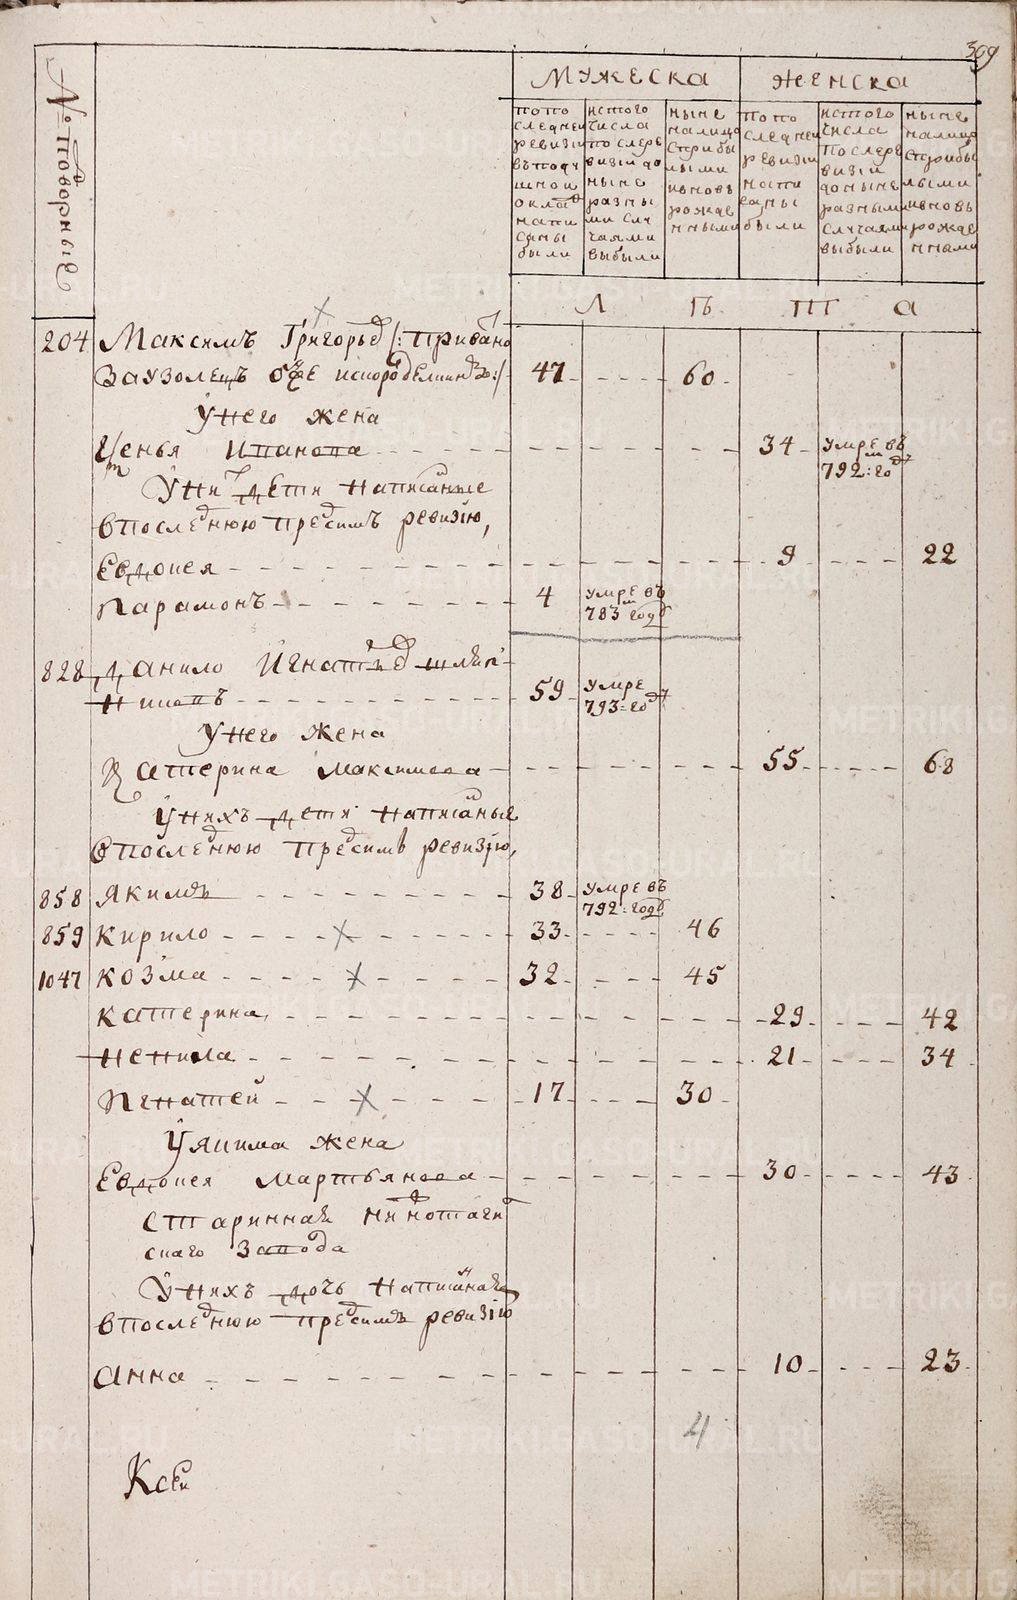 309
№ подворные
МУЖЕСКА
ЖЕНСКА
попо следней ревизіи въподушной окладъ написаны были
истого числа послереви зіи до ныне разными случаями выбыли
ныне налицо сприбылыми ивновь рожденными
попо следней ревизіи написаны были
истого числа послереви зіи доныне разными случаями выбыли
ныне налицо сприбылыми ивновь рожденными
Л Ѣ Т А
204 Максимъ Григорьевъ /: привано
заузолецъ 47 60
Унего жена
34 Умре въ 792: году
Уних дети написанные
впоследнюю предсимъ ревизію,
Евдокея 9 22
Парамонъ 4 умре въ 783м году
828 Данило Игнатьевъ
59 умре 793: году
Унего жена
Катерина Максимова 55 68
Унихъ дети написаные
впоследнюю предсимъ ревизію,
858 Якимъ 38 умре въ 792: году
859 Кирило 33 46
1047 Козма 32 45
Катерина 29 42
Ненила 21 34
Игнатей 17 30
Уякима жена
Евдокея Мартьянова 30 43
старинная
скаго завода
Унихъ дочь написанная
впоследнюю предсимъ ревизію
Анна 10 23
4
Ксен